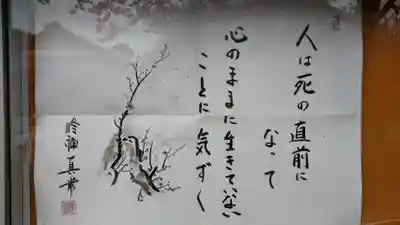 人は死の直前に
なって
心のままに生きていない
ことに気ずく